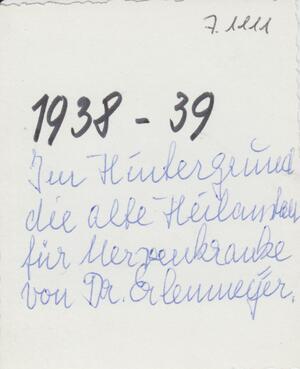 7.1111
1938 - 39
Im Hintergrund
die alte Heilanstalt
für Nervenkranke
von Dr. Erlenmeyer.